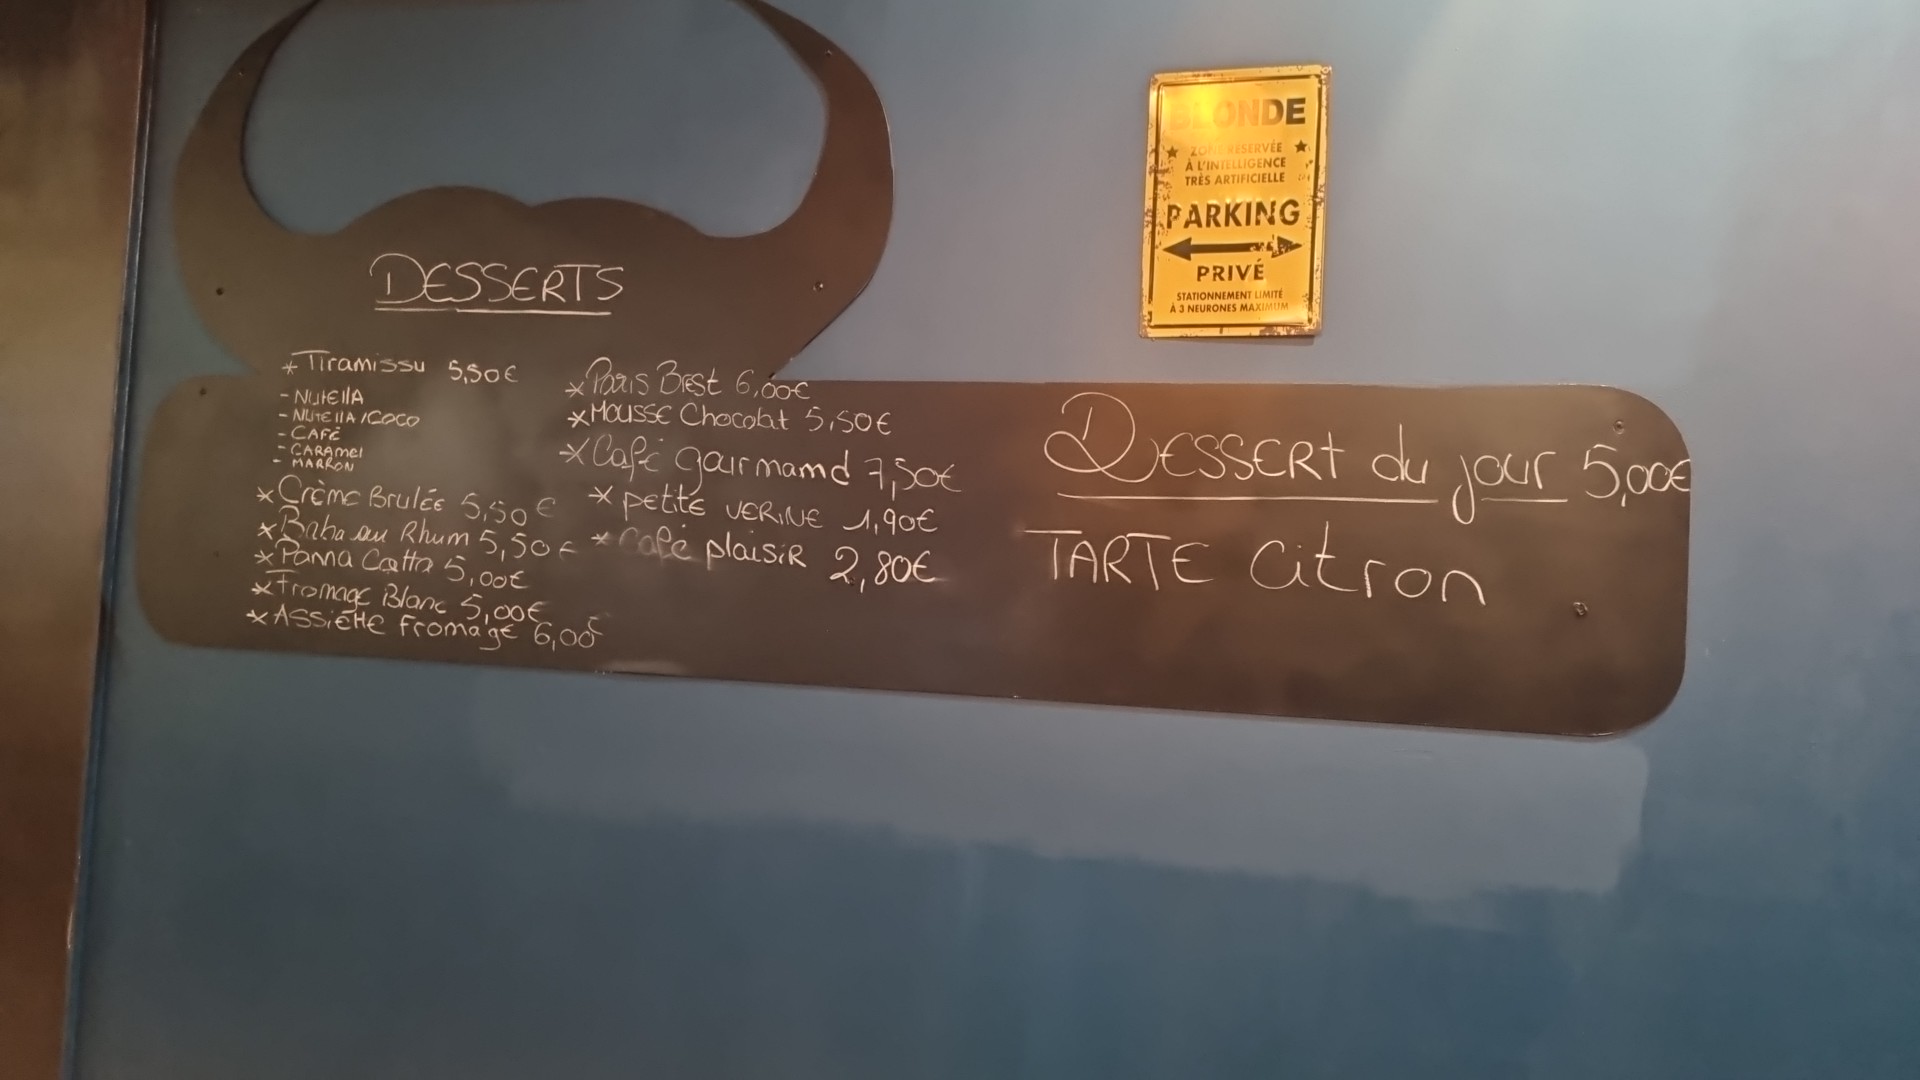 DESSERTS
* Tiramissu 5,50€
- NUtEllA
- NUtEllA/COCO
- CAFÉ
- CARAMEl
- MARRON
* Crème Brulée 5,50€
* Baba au Rhum 5,50€
* Panna Cotta 5,00€
* Fromage Blanc 5,00€
* Assiette Fromage 6,00€
* Paris Brest 6,00€
* Mousse Chocolat 5,50€
* Café gourmand 7,50€
* petite VERINE 1,90€
* Café plaisir 2,80€
DESSERt du jour 5,00€
TARTE Citron
BLONDE
★ ZONE RÉSERVÉE ★
À L'INTELLIGENCE
TRÈS ARTIFICIELLE
PARKING
PRIVÉ
STATIONNEMENT LIMITÉ
À 3 NEURONES MAXIMUM